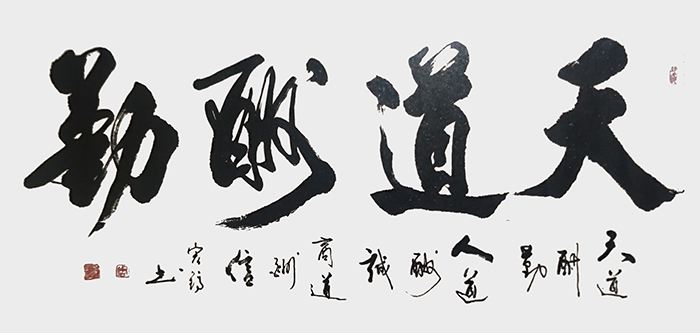 天道酬勤
天道酬勤 人道酬誠 商道酬信 书